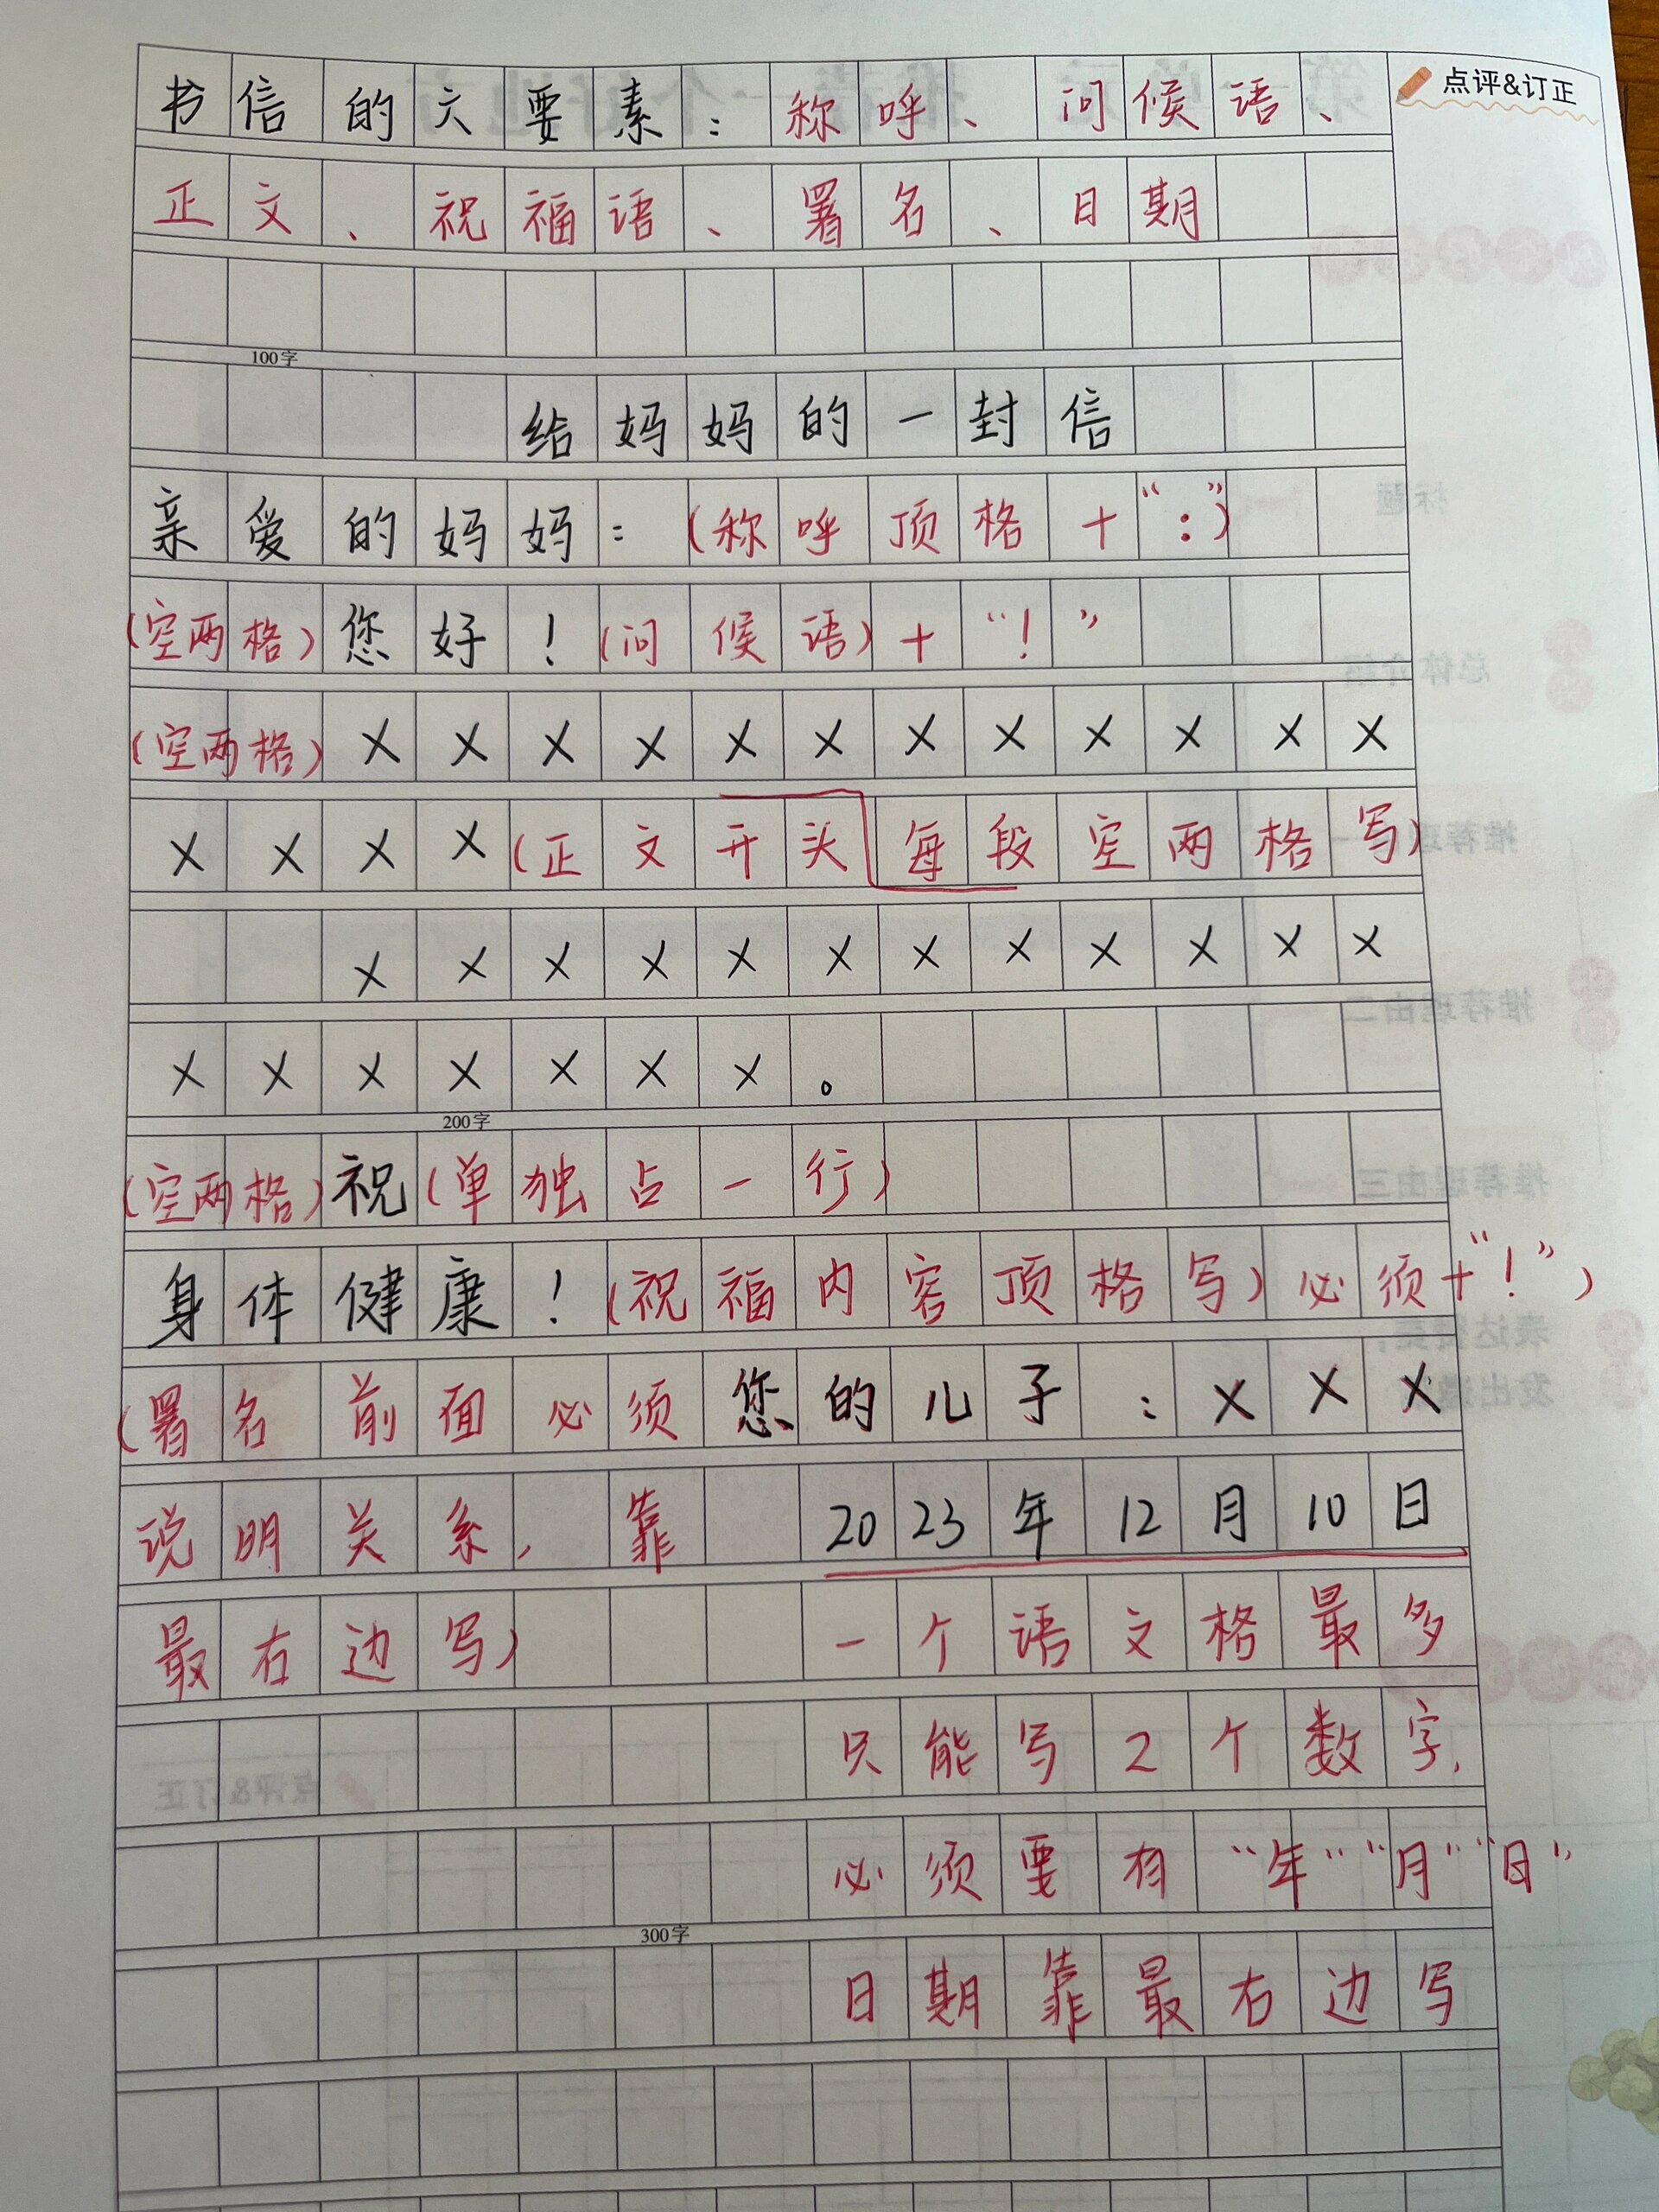 书信的六要素：称呼、问候语、
点评&订正
正文、祝福语、署名、日期
100字
给妈妈的一封信
亲爱的妈妈：(称呼顶格+“：”)
(空两格)您好！(问候语)+“！”
(空两格)××××××××××××
××××(正文开头每段空两格写)
××××××××××××
×××××××。
200字
(空两格)祝(单独占一行)
身体健康！(祝福内容顶格写)必须+“！”)
(署名前面必须 您的儿子：×××
说明关系，靠 2023年12月10日
最右边写) 一个语文格最多
只能写2个数字，
必须要有“年”“月”“日”
300字
日期靠最右边写